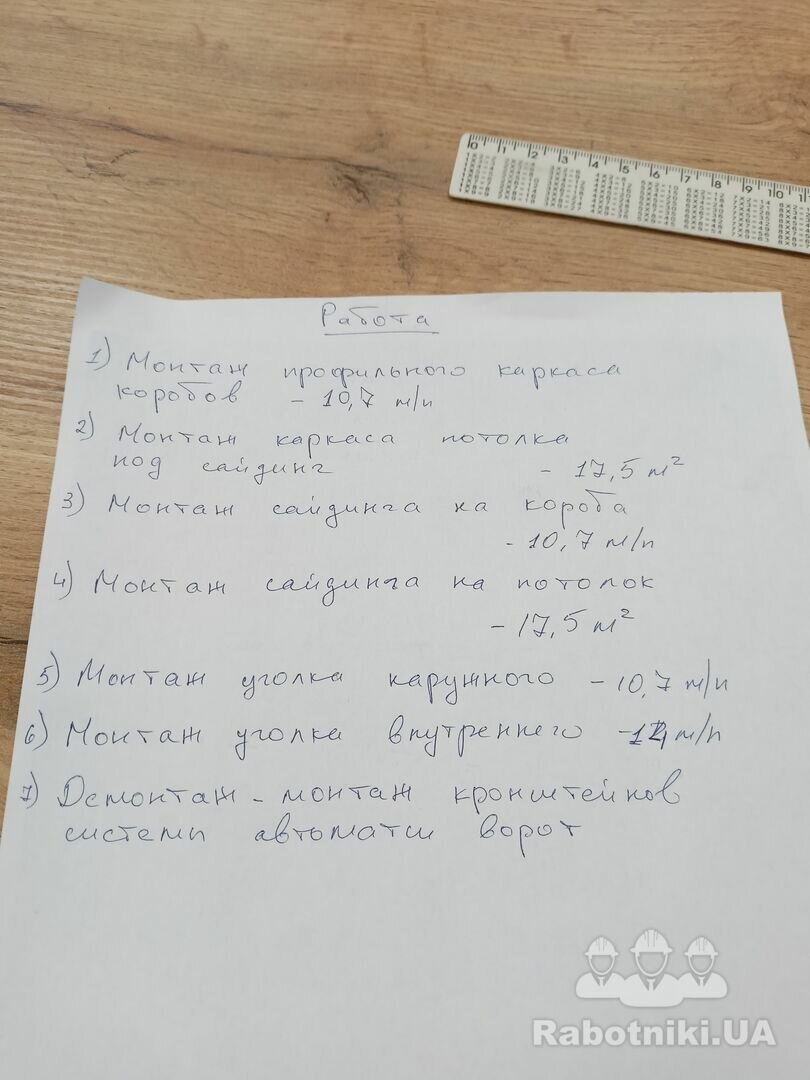 Работа
1) Монтаж профильного каркаса
коробов - 10,7 м/п
2) Монтаж каркаса потолка
под сайдинг - 17,5 м²
3) Монтаж сайдинга на короба
- 10,7 м/п
4) Монтаж сайдинга на потолок
- 17,5 м²
5) Монтаж уголка наружного - 10,7 м/п
6) Монтаж уголка внутреннего - м/п
7) Демонтаж - монтаж кронштейнов
системы ворот
0 1 2 3 4 5 6 7 8 9 10
Rabotniki.UA